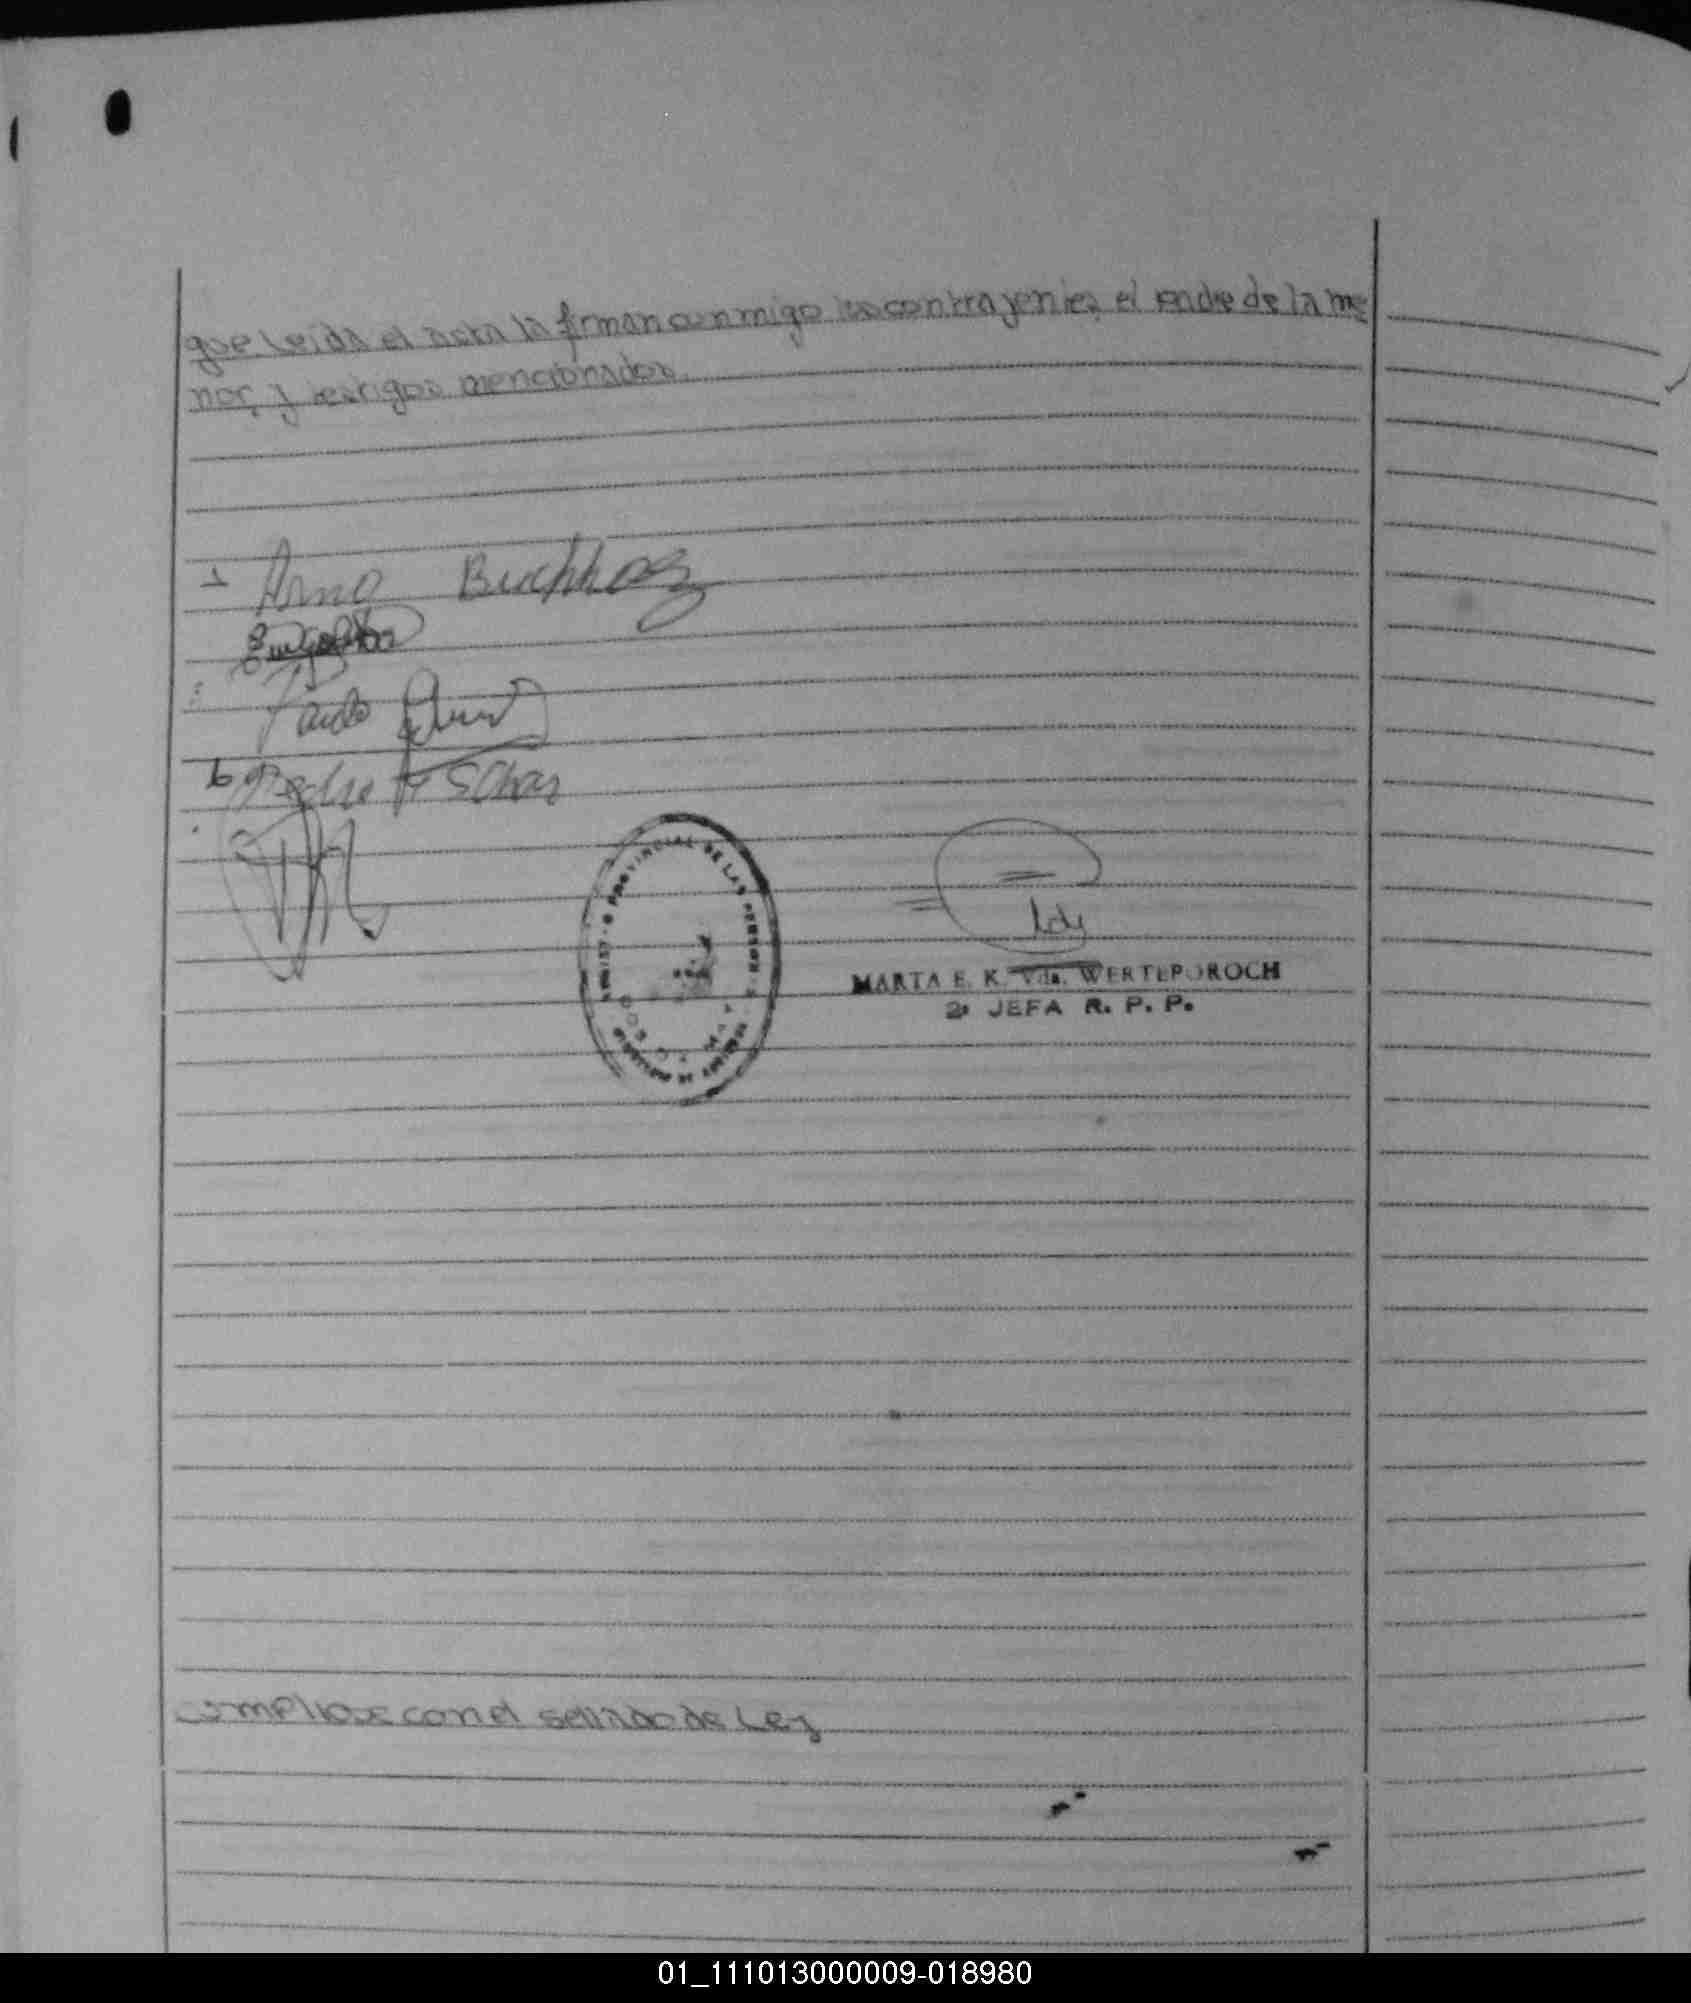 que leida el acta la firman conmigo los contrajentes, el padre de la me
nor, y testigos mencionados.
Arno Buchholz
Paulo
Pedro
PROVINCIAL DE LAS PERSONAS
MARTA E. K. Vda. WERTEPOROCH
2ª JEFA R. P. P.
Cumpliose con el sellado de Ley
01_111013000009-018980